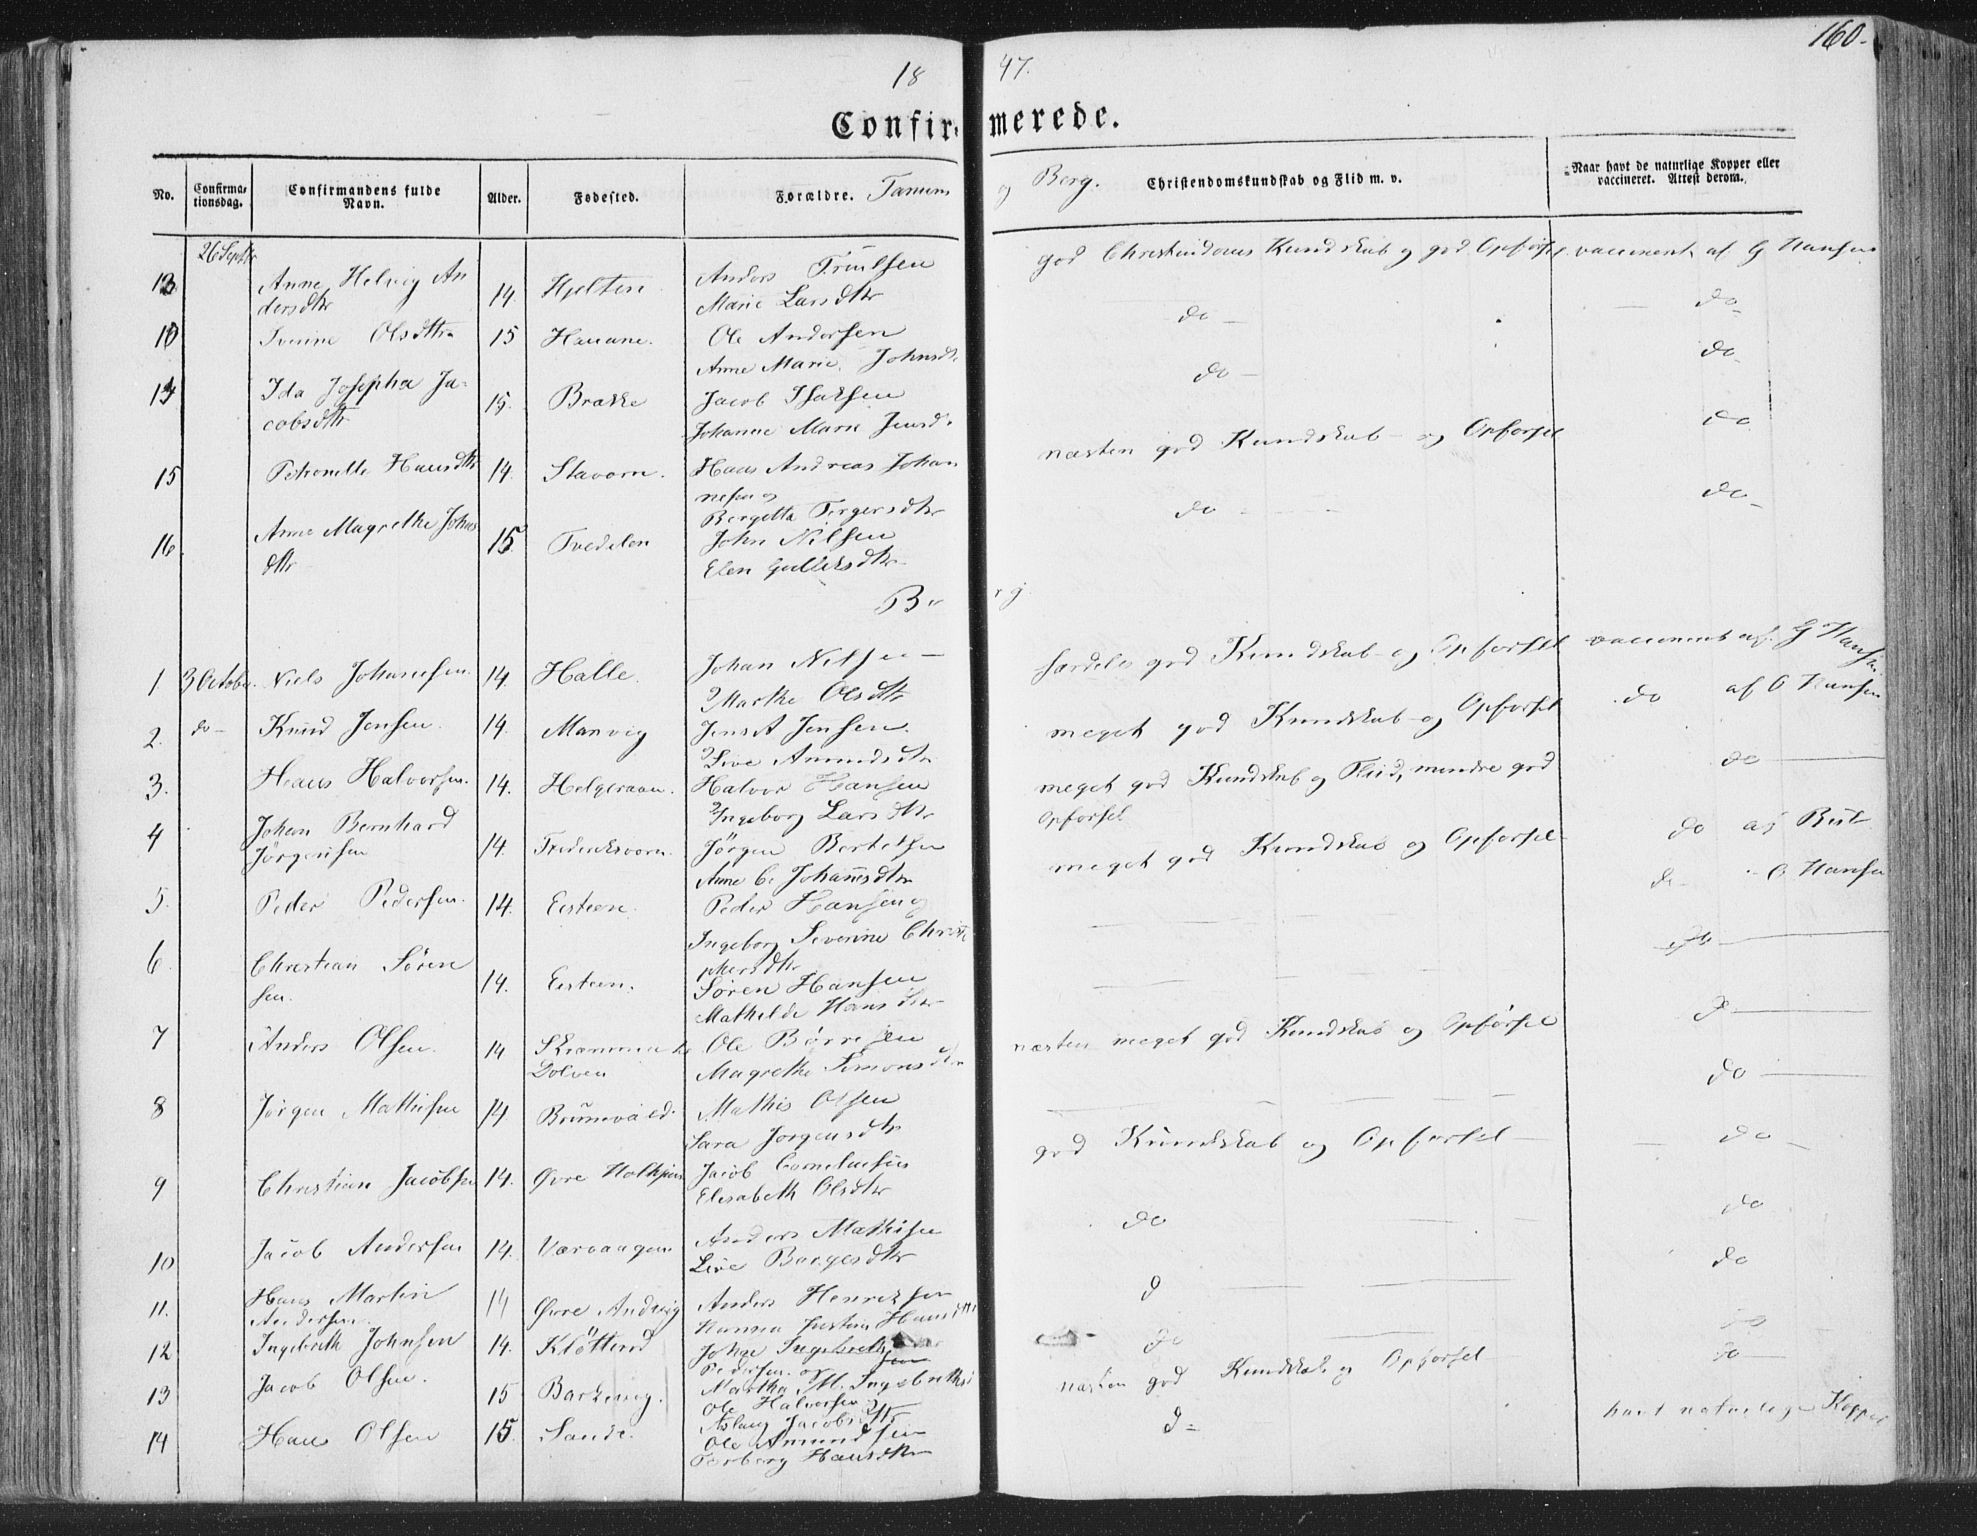 160.
18 47.
Confirmerede.
No. Confirmationsdag. Confirmandens fulde Navn. Alder. Fødested. Forældre. Tanum og Berg. Christendomskundskab og Flid m. v. Naar havt de naturlige Kopper eller vaccineret. Attest derom.
26 Septbr god Christendoms Kundskab og god Opførsel vaccineret af G Hansen
Anne Helvig An Anders Truelsen
dersdtr 14. Hjelten Marie Larsdtr do
Iverine Olsdtr 15 Hauane. Ole Andersen do
Anne Marie Johnsdr do
Ida Josepha Ja- 15. Brække Jacob Isaksen do
cobsdtr Johanne Marie Jensd.
15 Petronelle Hansdtr 14. Stavern. Hans Andreas Johan næsten god Kundskab og Opførsel do
nesen og
Bergetta Torgersdtr
16 Anne Magrethe Johns 15 Tvedelen John Nilsen do do
dtr Elen Gulliksdtr
Berg
1 3 October. Niels Johannesen 14. Halle. Johan Nilsen særdeles god Kundskab og Opførsel vaccineret af G Hansen
Marthe Olsdtr
2. do Knud Jensen 14. Manvig Jens A Jensen. meget god Kundskab og Opførsel do af G Hansen
Live Amundsdtr
3. Hans Halvorsen. 14. Helgeraaen. Halvor Hansen meget god Kundskab og Flid, mindre god do
Ingeborg Larsdtr Opførsel
4 Johan Bernhard
Jørgensen 14. Frederiksværn. Jørgen Bertelsen meget god Kundskab og Opførsel do
Anne C. Johannsdtr
5. Peder Pedersen. 14. Eesteen. Peder Hansen og do G Hansen
Ingeborg Severine Christo
phersdtr
6. Christian Søren 14. Eesteen. Søren Hansen do
sen. Mathilde Hansdtr
7 Anders Olsen. 14 Ole Børresen næsten meget god Kundskab og Opførsel do
Dolven Magrethe Simonsdtr
8 Jørgen Mathisen 14 Brunevald. Mathis Olsen do
Sara Jorgensdtr
9 Christian Jacobsen 14. Øvre Jacob Corneliusen god Kundskab og Opførsel do
Elisabeth Olsdtr
10 Jacob Andersen 14. Værvaagen Anders Mathisen do do
Live Borgesdtr
11. Hans Martin 14 Øvre Andvig Anders Henriksen do do
Andersen.
12 Ingebreth Johnsen 14. Kløttend do
Pedersen og
Martha M. Ingebrethsd
13 Jacob Olsen. 15 Barkevig. Ole Halvorsen næsten god Kundskab og Opførsel do
Aslaug Jacobsdtr
14 Hans Olsen 15 Sande. Ole Amundsen do havt naturlige Kopper
Torberg Hansdtr